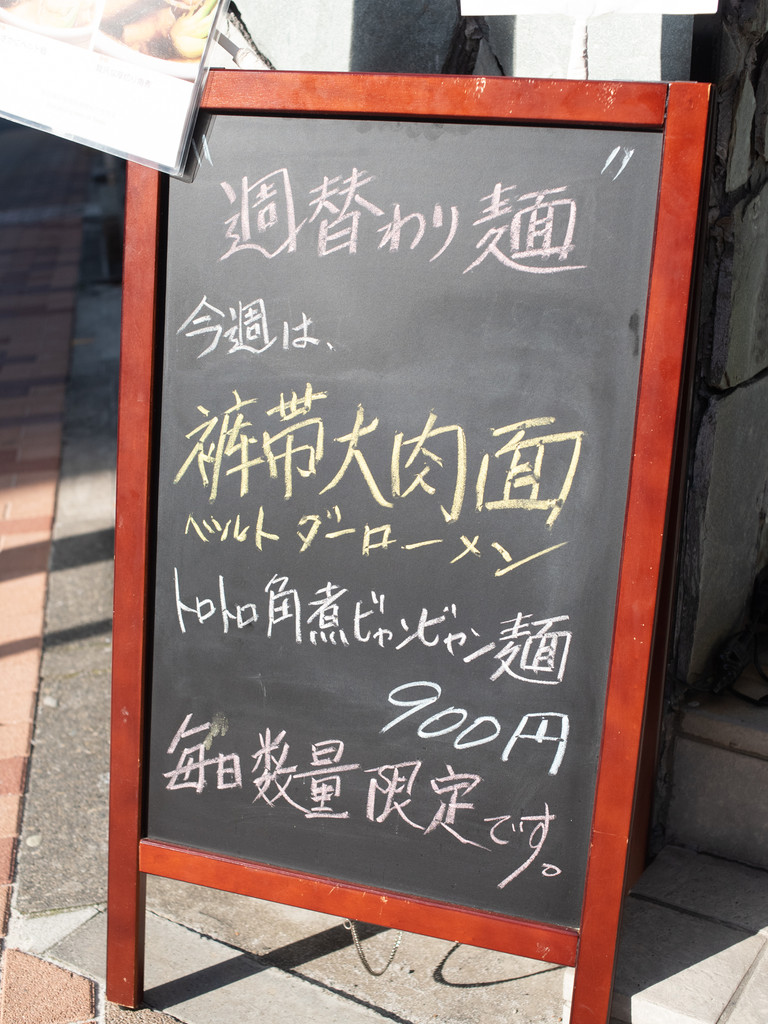 "週替わり麺"
今週は、
裤带大肉面
ベルト ダーローメン
トロトロ角煮ビャンビャン麺
900円
毎日数量限定です。